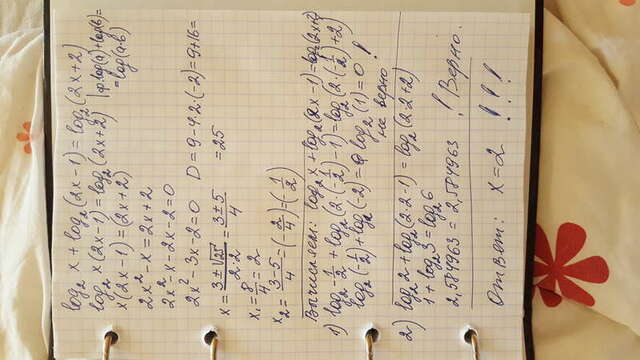 log₂ x + log₂ (2x-1) = log₂ (2x+2)
log₂ x(2x-1) = log₂ (2x+2) | ф. log(a)+log(b)=
= log(a·b)
x(2x-1) = (2x+2)
2x² - x = 2x + 2
2x² - x - 2x - 2 = 0
2x² - 3x - 2 = 0 D = 9-4·2·(-2) = 9+16 =
= 25
x = (3±√25)/(2·2) = (3±5)/4
x₁ = 8/4 = 2
x₂ = (3-5)/4 = (-2/4) = (-1/2)
Вычисляем: log₂ x + log₂(2x-1) = log₂(2x+2)
1) log₂ -1/2 + log₂(2·(-1/2)-1) = log₂(2·(-1/2)+2)
log₂(-1/2) + log₂(-2) = log₂(1) = 0 !
не верно
2) log₂ 2 + log₂(2·2-1) = log₂(2·2+2)
1 + log₂ 3 = log₂ 6
2,584963 = 2,584963 ! Верно.
Ответ: x = 2 !!!